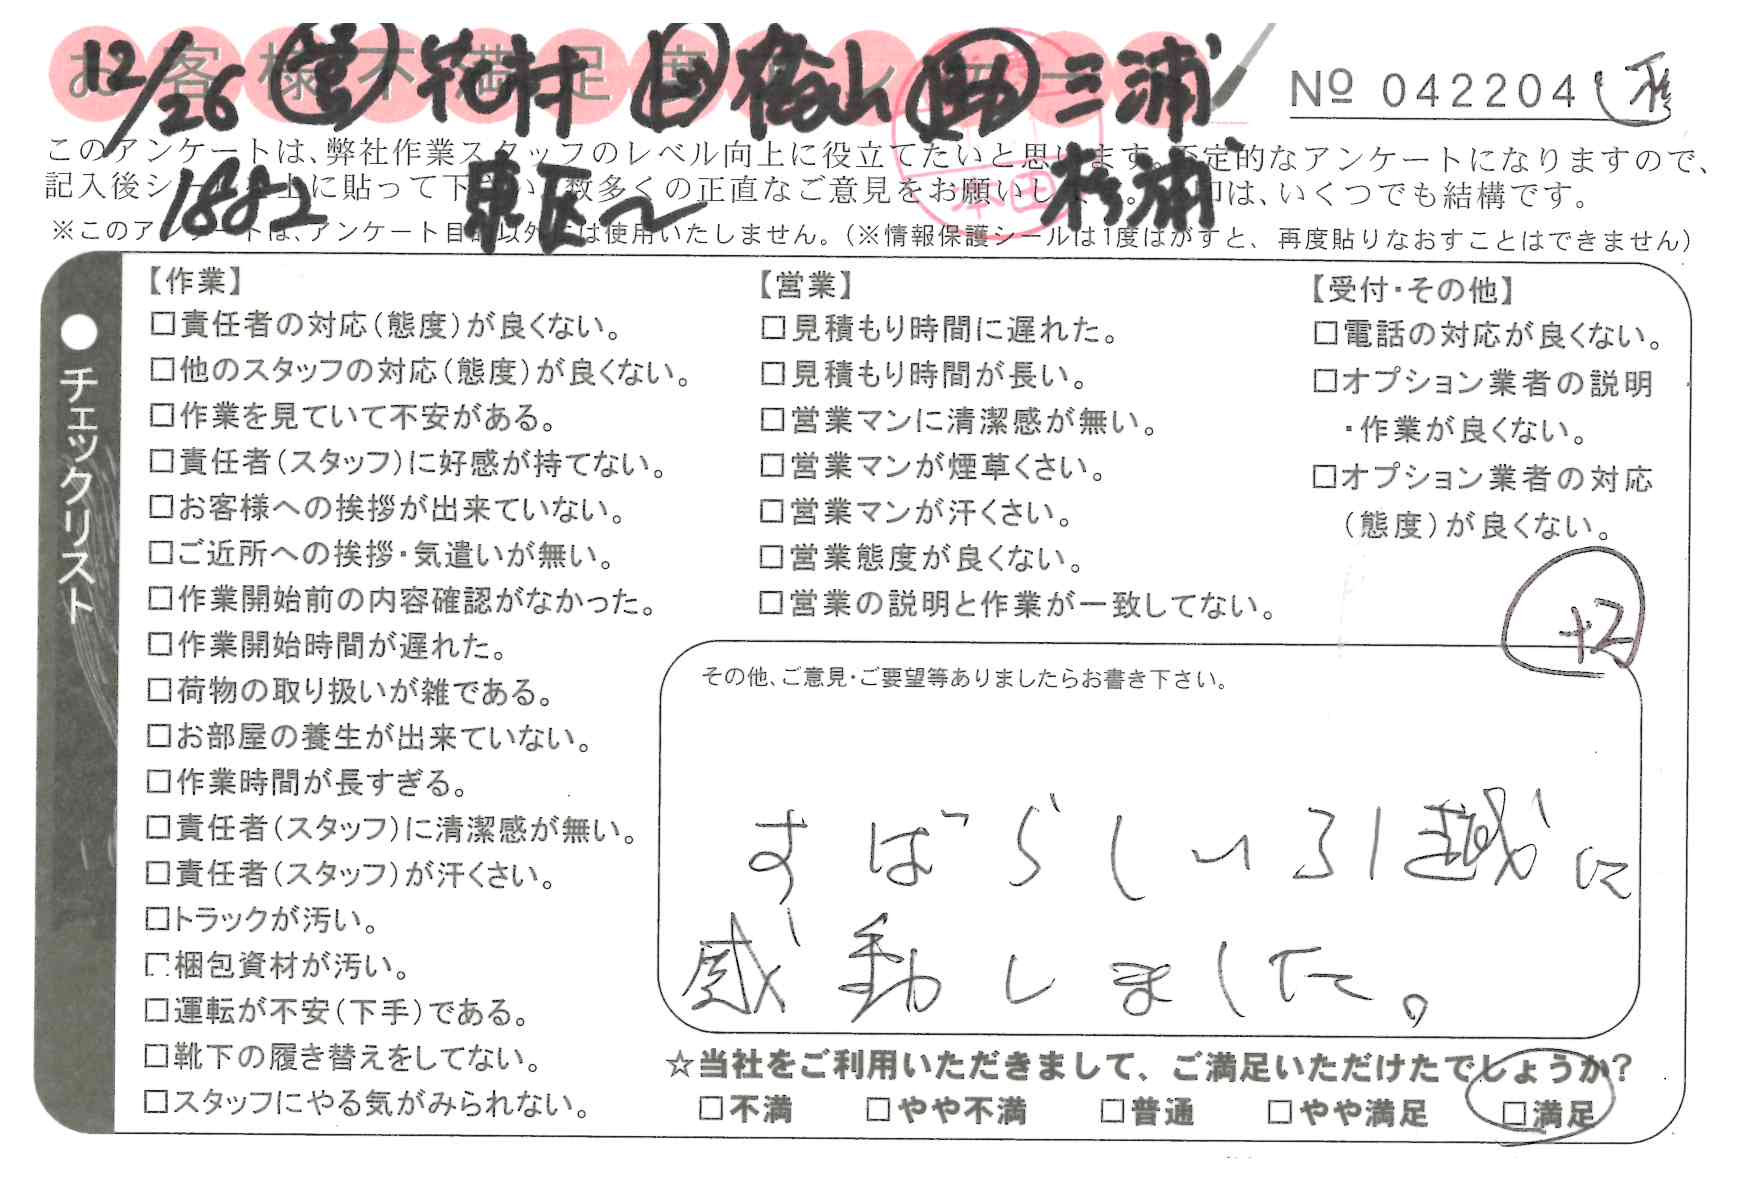 お客様不満足度アンケート
12/26 営 花村 B 桧山 助 三浦
No 042204
このアンケートは、弊社作業スタッフのレベル向上に役立てたいと思います。否定的なアンケートになりますので、
1882 東区〜 杉浦
記入後シールを上に貼って下さい。数多くの正直なご意見をお願いします。 印は、いくつでも結構です。
※このアンケートは、アンケート目的以外には使用いたしません。(※情報保護シールは1度はがすと、再度貼りなおすことはできません)
本田
●チェックリスト
【作業】
□責任者の対応(態度)が良くない。
□他のスタッフの対応(態度)が良くない。
□作業を見ていて不安がある。
□責任者(スタッフ)に好感が持てない。
□お客様への挨拶が出来ていない。
□ご近所への挨拶・気遣いが無い。
□作業開始前の内容確認がなかった。
□作業開始時間が遅れた。
□荷物の取り扱いが雑である。
□お部屋の養生が出来ていない。
□作業時間が長すぎる。
□責任者(スタッフ)に清潔感が無い。
□責任者(スタッフ)が汗くさい。
□トラックが汚い。
□梱包資材が汚い。
□運転が不安(下手)である。
□靴下の履き替えをしてない。
□スタッフにやる気がみられない。
【営業】
□見積もり時間に遅れた。
□見積もり時間が長い。
□営業マンに清潔感が無い。
□営業マンが煙草くさい。
□営業マンが汗くさい。
□営業態度が良くない。
□営業の説明と作業が一致してない。
【受付・その他】
□電話の対応が良くない。
□オプション業者の説明
・作業が良くない。
□オプション業者の対応
(態度)が良くない。
+2
その他、ご意見・ご要望等ありましたらお書き下さい。
すばらしい引越に
感動しました。
☆当社をご利用いただきまして、ご満足いただけたでしょうか?
□不満 □やや不満 □普通 □やや満足 □満足